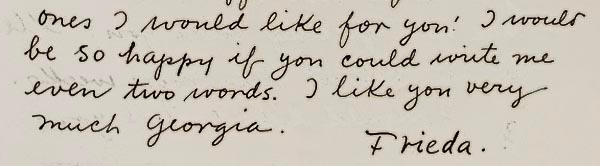 ones I would like for you! I would
be so happy if you could write me
even two words. I like you very
much Georgia.
Frieda.